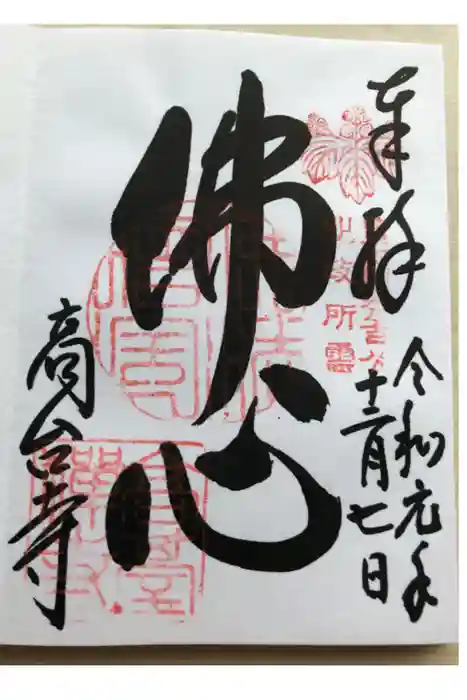 奉拝
令和元年
十二月七日
佛心
高台寺